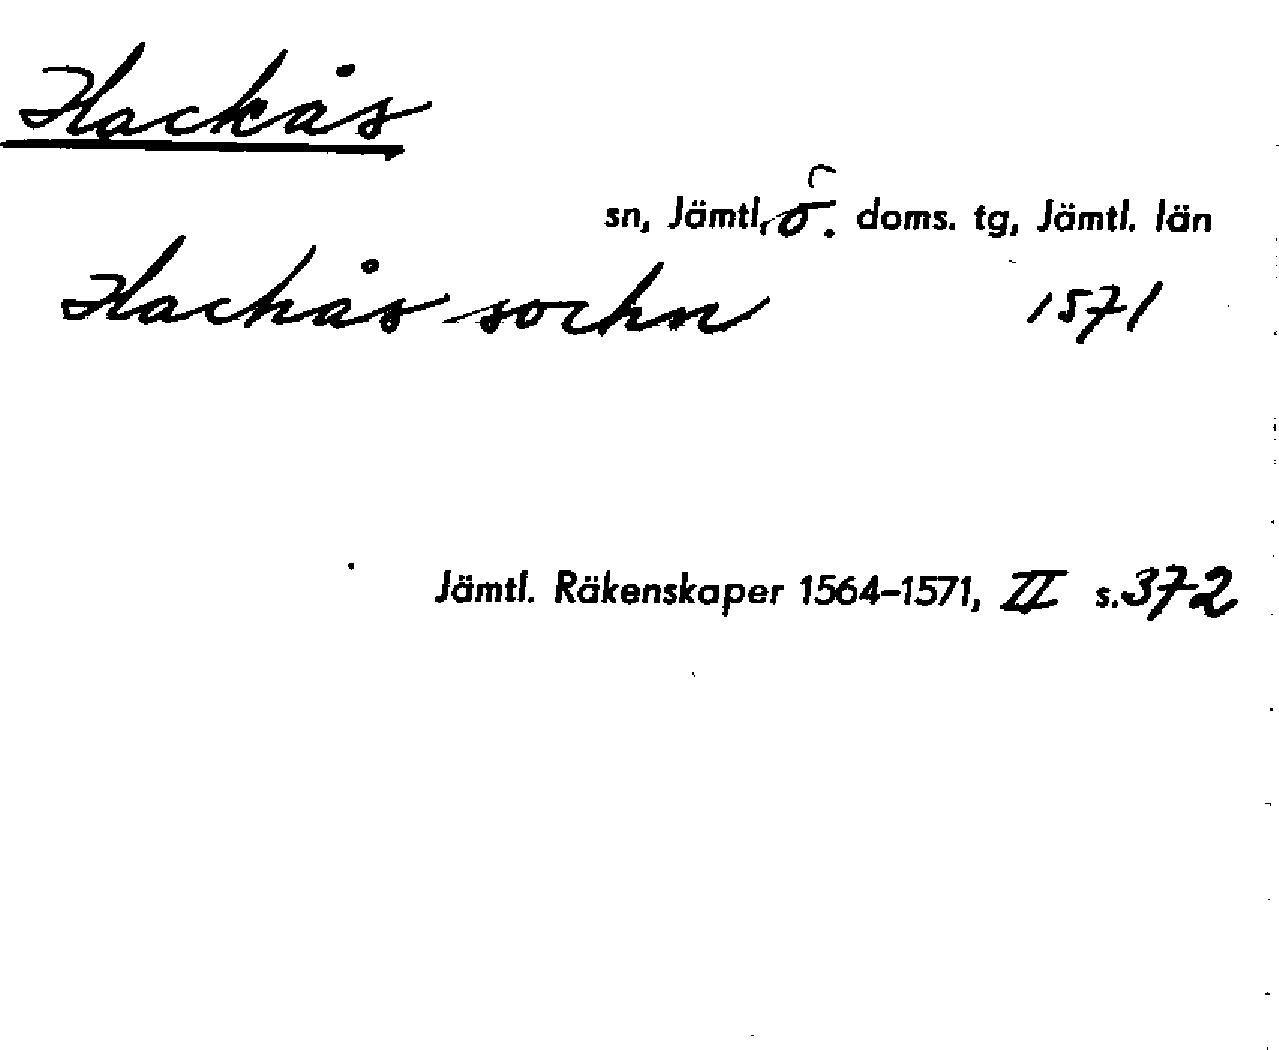 Hackås
sn, Jämtl, ö. doms. tg, Jämtl. län
Hackås sochn 1571
Jämtl. Räkenskaper 1564-1571, II s. 372